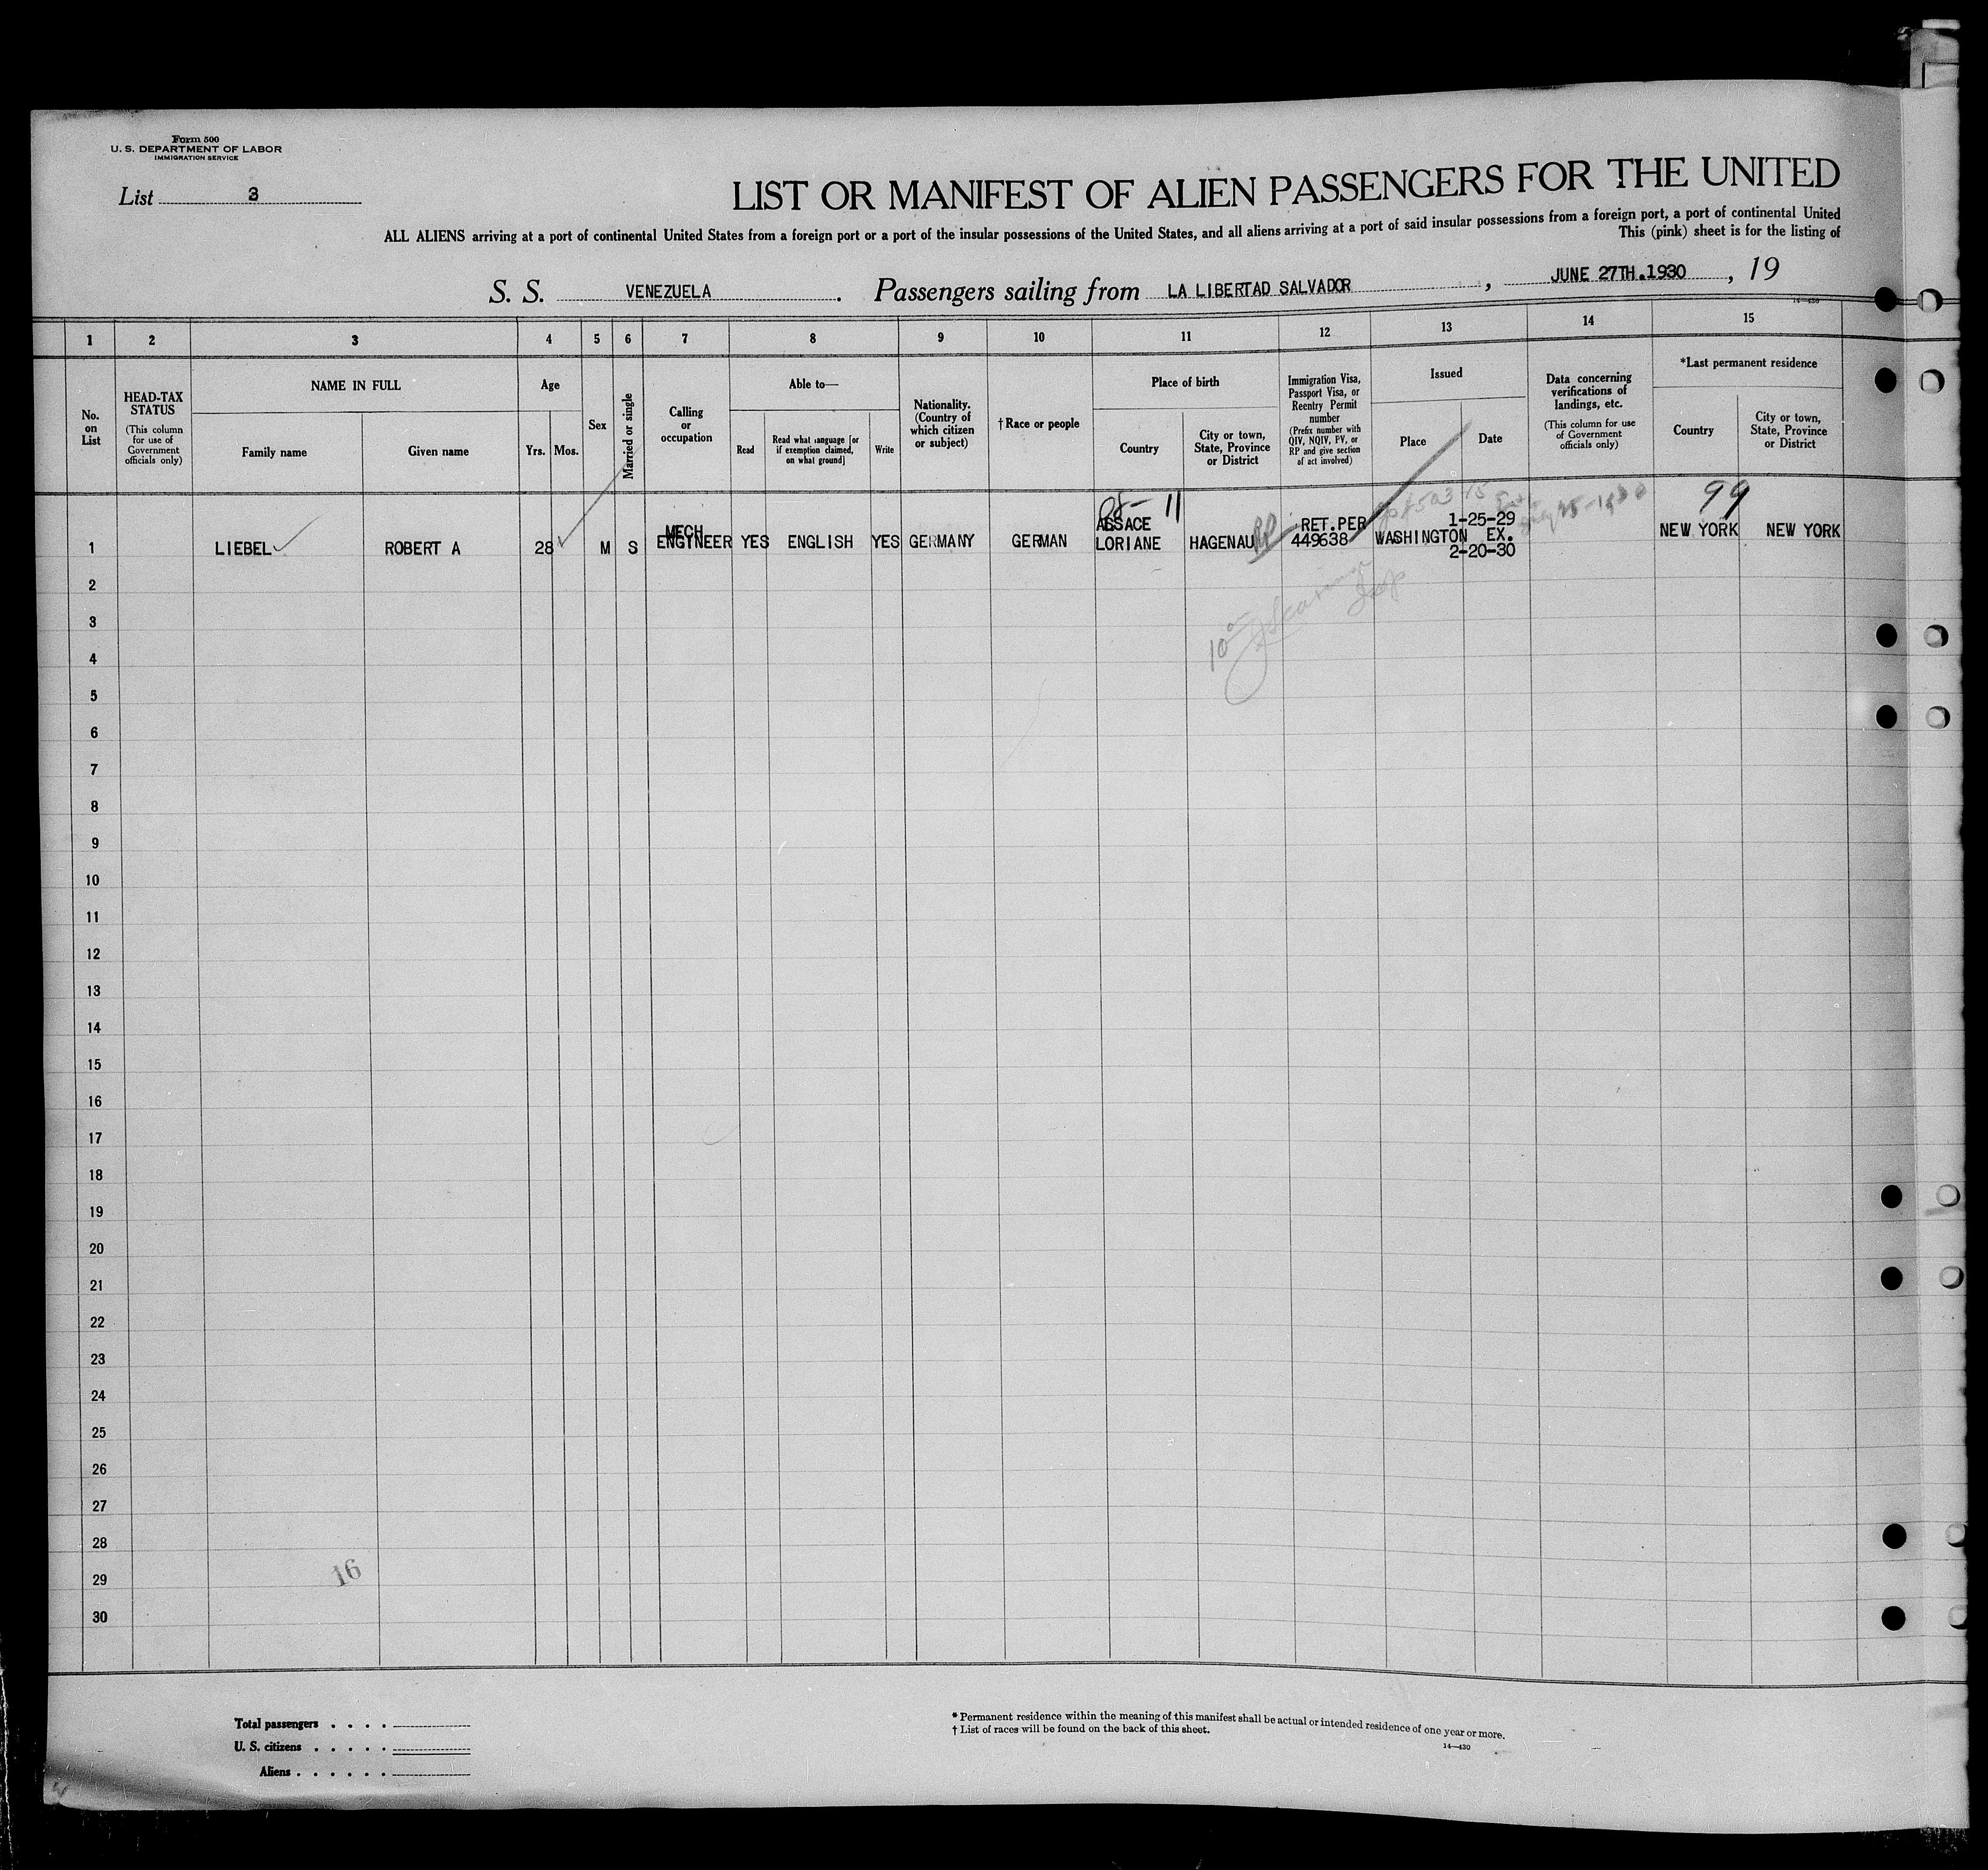 Form 500
U. S. DEPARTMENT OF LABOR
IMMIGRATION SERVICE
List 3
LIST OR MANIFEST OF ALIEN PASSENGERS FOR THE UNITED
ALL ALIENS arriving at a port of continental United States from a foreign port or a port of the insular possessions of the United States, and all aliens arriving at a port of said insular possessions from a foreign port, a port of continental United
This (pink) sheet is for the listing of
S. S. VENEZUELA. Passengers sailing from LA LIBERTAD SALVADOR, JUNE 27TH.1930, 19
14—430
1 2 3 4 5 6 7 8 9 10 11 12 13 14 15
No. on List
HEAD-TAX STATUS
(This column for use of Government officials only)
NAME IN FULL
Family name
Given name
Age
Yrs.
Mos.
Sex
Married or single
Calling or occupation
Able to—
Read
Read what language [or if exemption claimed, on what ground]
Write
Nationality. (Country of which citizen or subject)
†Race or people
Place of birth
Country
City or town, State, Province or District
Immigration Visa, Passport Visa, or Reentry Permit number
(Prefix number with QIV, NQIV, PV, or RP and give section of act involved)
Issued
Place
Date
Data concerning verifications of landings, etc.
(This column for use of Government officials only)
*Last permanent residence
Country
City or town, State, Province or District
11
99
1 LIEBEL ROBERT A 28 M S MECH ENGINEER YES ENGLISH YES GERMANY GERMAN ALSACE LORIANE HAGENAU RP RET.PER 449638 WASHINGTON 1-25-29 EX. 2-20-30 NEW YORK NEW YORK
2
3
4
5
6
7
8
9
10
11
12
13
14
15
16
17
18
19
20
21
22
23
24
25
26
27
28
29
30
16
Total passengers . . . .
U. S. citizens . . . . .
Aliens . . . . . .
* Permanent residence within the meaning of this manifest shall be actual or intended residence of one year or more.
† List of races will be found on the back of this sheet.
14—430